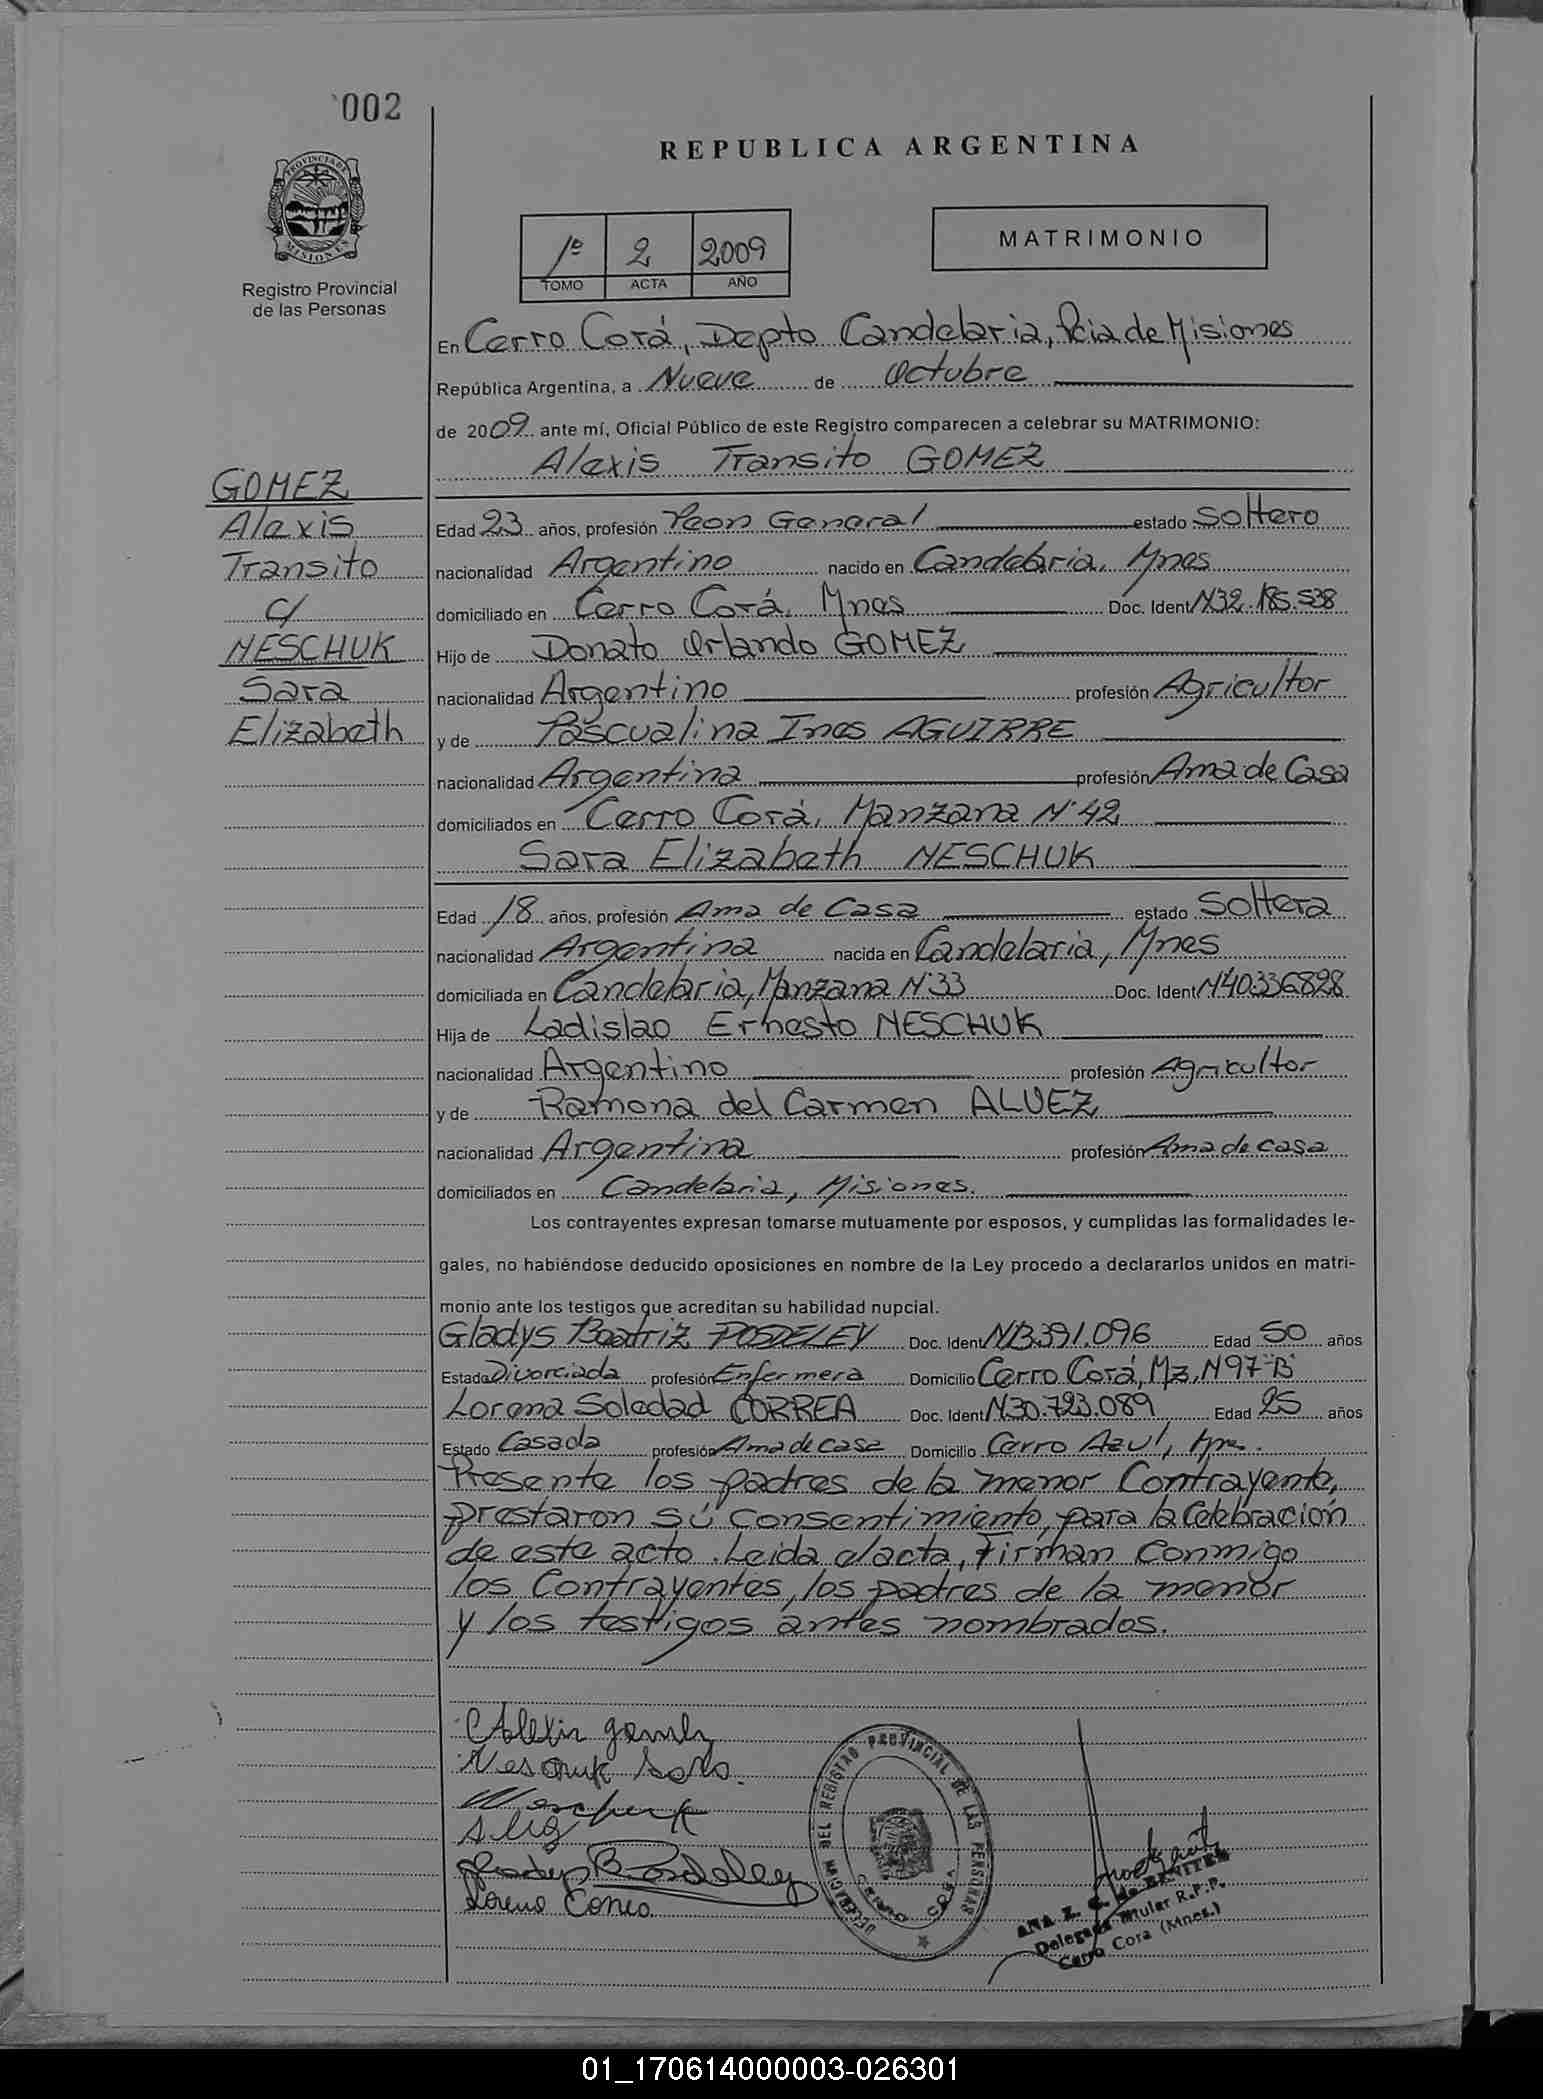 002
REPUBLICA ARGENTINA
PROVINCIA DE MISIONES
Registro Provincial
de las Personas
1º 2 2009
TOMO ACTA AÑO
MATRIMONIO
En Cerro Corá, Depto Candelaria, Pcia de Misiones
República Argentina, a Nueve de Octubre
de 2009 ante mí, Oficial Público de este Registro comparecen a celebrar su MATRIMONIO:
Alexis Transito GOMEZ
GOMEZ
Alexis
Transito
c/
NESCHUK
Sara
Elizabeth
Edad 23 años, profesión Peon General estado Soltero
nacionalidad Argentino nacido en Candelaria, Mnes
domiciliado en Cerro Corá, Mnes Doc. Ident Nº32.185.538
Hijo de Donato Orlando GOMEZ
nacionalidad Argentino profesión Agricultor
y de Pascualina Ines AGUIRRE
nacionalidad Argentina profesión Ama de Casa
domiciliados en Cerro Corá, Manzana Nº 42
Sara Elizabeth NESCHUK
Edad 18 años, profesión Ama de Casa estado Soltera
nacionalidad Argentina nacida en Candelaria, Mnes
domiciliada en Candelaria, Manzana Nº 33 Doc. Ident Nº40.336.828
Hija de Ladislao Ernesto NESCHUK
nacionalidad Argentino profesión Agricultor
y de Ramona del Carmen ALVEZ
nacionalidad Argentina profesión Ama de casa
domiciliados en Candelaria, Misiones.
Los contrayentes expresan tomarse mutuamente por esposos, y cumplidas las formalidades le-
gales, no habiéndose deducido oposiciones en nombre de la Ley procedo a declararlos unidos en matri-
monio ante los testigos que acreditan su habilidad nupcial.
Gladys Beatriz POSDELEY Doc. Ident Nº13.391.096 Edad 50 años
Estado Divorciada profesión Enfermera Domicilio Cerro Corá, Mz, Nº 97 "B"
Lorena Soledad CORREA Doc. Ident Nº30.723.089 Edad 25 años
Estado Casada profesión Ama de casa Domicilio Cerro Azul,
Presente los padres de la menor Contrayente,
prestaron sú consentimiento, para la Celebración
de este acto. Leida el acta, Firman Conmigo
los Contrayentes, los padres de la menor
y los testigos antes nombrados.
Alexis gomez
Neschuk Sara.
Neschuk
Gladys B Posdeley
Lorena Correa
DELEGACION DEL REGISTRO PROVINCIAL DE LAS PERSONAS
CERRO CORA
ANA Z. G. de BENITEZ
Delegada Titular R.P.P.
Cerro Cora (Mnes.)
01_170614000003-026301